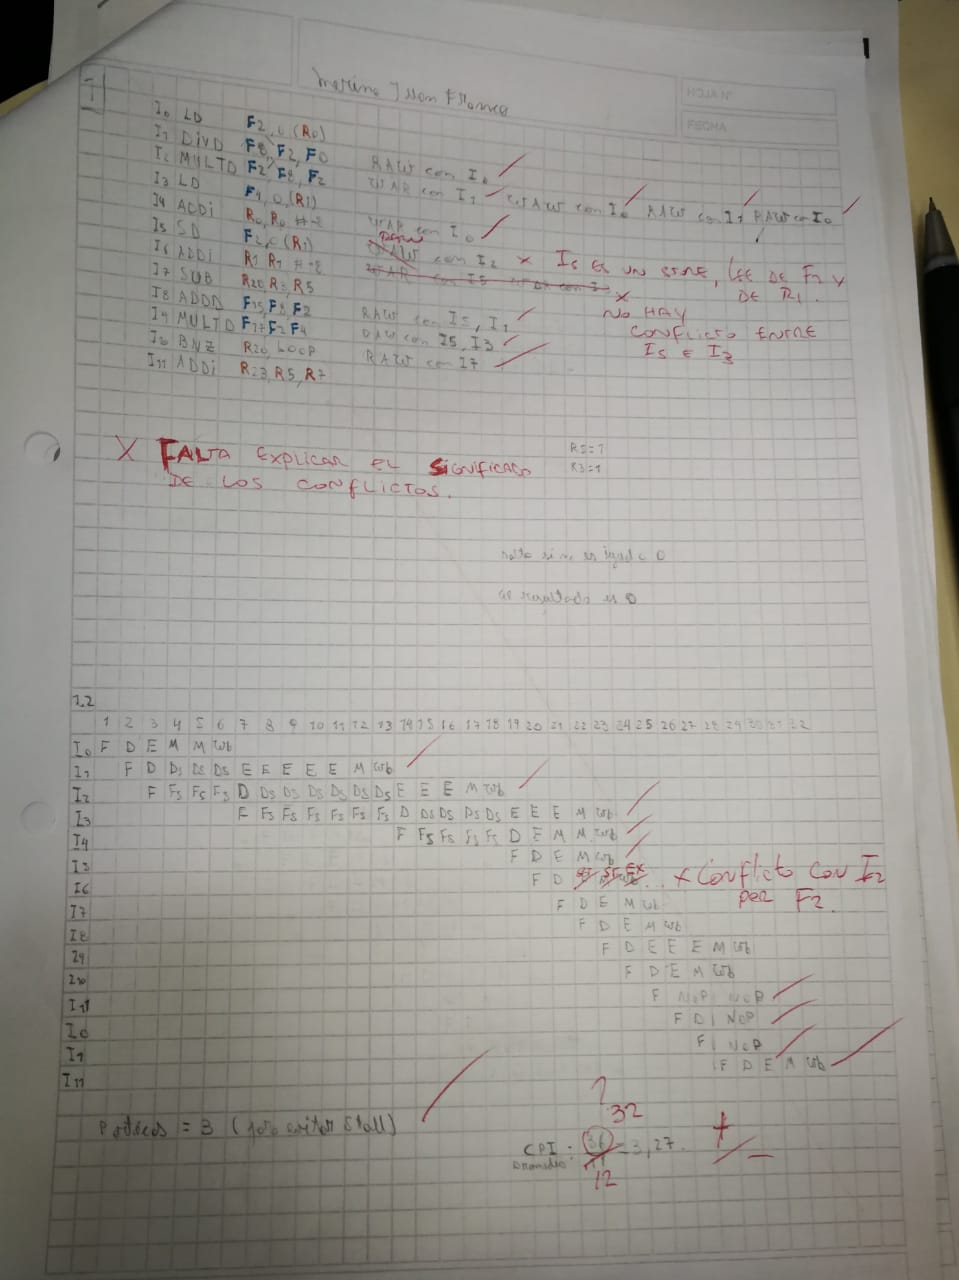 HOJA N°
FECHA
1
I0 LD F2, 0 (R0)
I1 DIVD F8, F2, F0 RAW con I0
I2 MULTD F2, F8, F2 WAR con I1 WAW con I0 RAW con I1 RAW con I0
I3 LD F4, 0, (R1)
I4 ADDi R0, R0, #-8 WAR con I0
I5 SD F2, 0 (R1) RAW con I2 × I5 ES UN STORE, LEE DE F2 Y DE R1.
I6 ADDi R1 R1 #-8 ×
I7 SUB R20, R3, R5 NO HAY CONFLICTO ENTRE I5 E I3
I8 ADDD F15, F8, F2 RAW con I5, I1
I9 MULTD F17, F2 F4 RAW con I5, I3
BNZ R20, LOOP RAW con I7
I11 ADDi R23, R5, R7
X FALTA EXPLICAR EL SIGNIFICADO
DE LOS CONFLICTOS.
R5=1
R3=1
resultado es 0
1.2
1 2 3 4 5 6 7 8 9 10 11 12 13 14 15 16 17 18 19 20 21 22 23 24 25 26 27 28 29 30 31 32
I0 F D E M M Wb
I1 F D Ds Ds Ds E E E E E M Wb
I2 F Fs Fs Fs D Ds Ds Ds Ds Ds Ds E E E M Wb
I3 F Fs Fs Fs Fs Fs Fs D Ds Ds Ds Ds E E E M Wb
I4 F Fs Fs Fs Fs D E M M Wb
I5 F D E M Wb
I6 F D ST ST EX × CONFLICTO CON I2
POR F2.
I7 F D E M Wb
I8 F D E M Wb
I9 F D E E E M Wb
I10 F D E M Wb
I11 F NOP NOP
I0 F D | NOP
I1 F | NOP
I11 F D E M Wb
= 3 (para evitar Stall)
?
32
CPI promedio: 36/11 = 3,27.
12
+/-